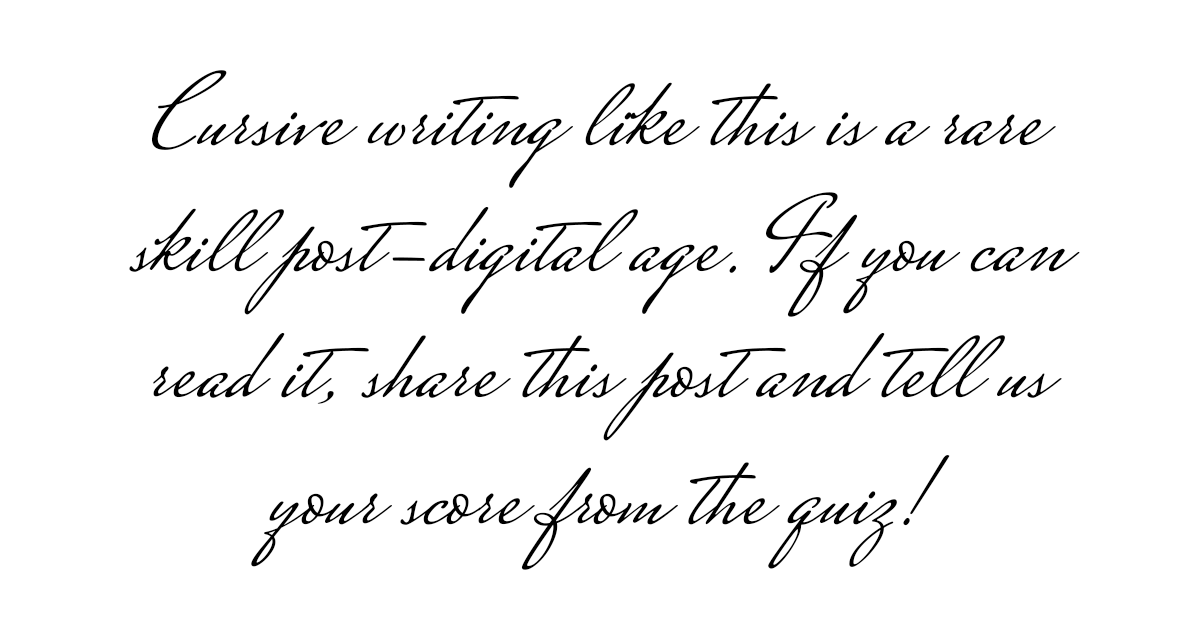 Cursive writing like this is a rare
skill post-digital age. If you can
read it, share this post and tell us
your score from the quiz!